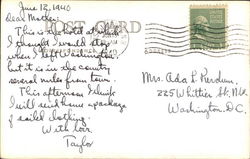 June 12, 1940
POST CARD
Dear Mother:
This is the hotel at which
I thought I would stop
when I left Washington,
but it is in the country
several miles from town.
This afternoon I think
I will send home a package
of soiled clothing.
With love,
Taylor
Mrs. Ada L. Perdum,
225 Whittier St., N.W.
Washington, D.C.